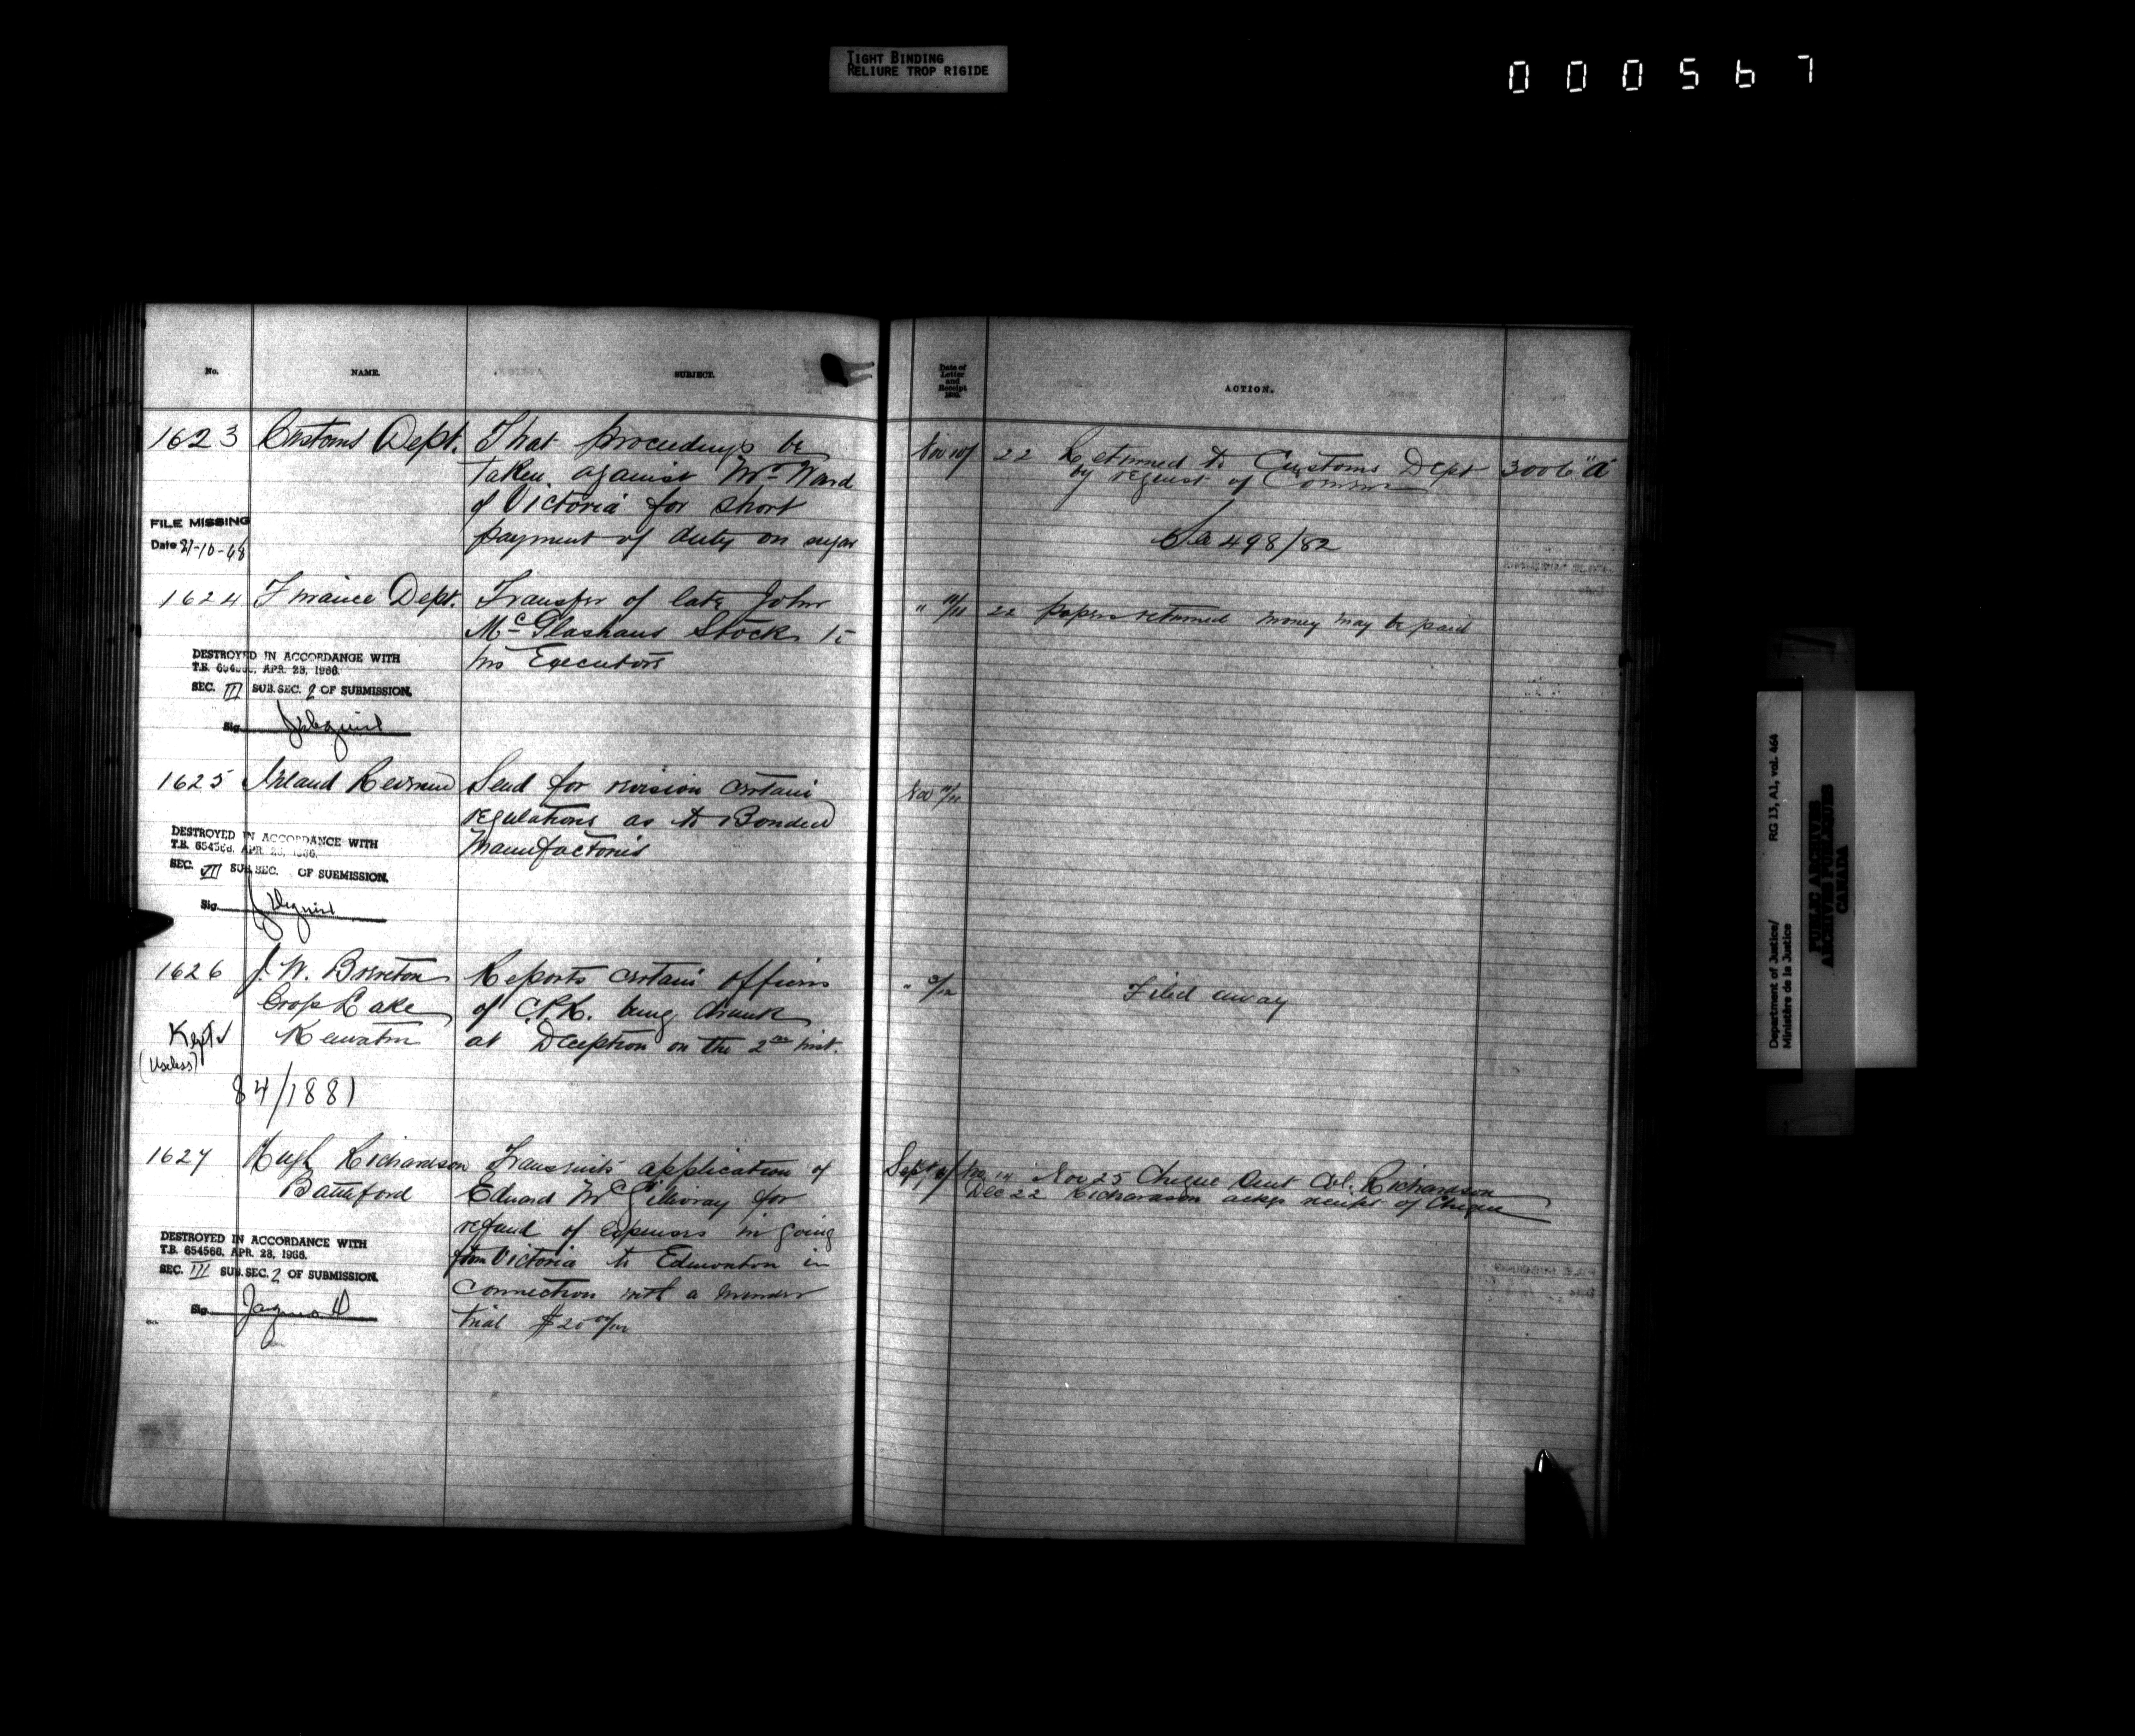 TIGHT BINDING
RELIURE TROP RIGIDE
000567
No.
NAME.
SUBJECT.
1623 Customs Dept. That proceedings be
taken against Mr. Ward
of Victoria for short
payment of duty on sugar
FILE MISSING
Date 21-10-68
1624 Finance Dept. Transfer of late John
McGlashans Stock to
his Executors
DESTROYED IN ACCORDANCE WITH
T.B. 654566, APR. 28, 1966.
SEC. III SUB.SEC. 2 OF SUBMISSION.
Sig.
1625 Inland Revenue Send for revision certain
regulations as to Bonded
Manufactories
DESTROYED IN ACCORDANCE WITH
T.B. 654566, APR. 28, 1966.
SEC. III SUB.SEC. OF SUBMISSION.
Sig.
1626 J. W. Brereton Reports certain officers
Cross Lake of C.P.R. being drunk
Keewatin at Deception on the 2nd inst.
Kept
(Useless)
84/1881
1627 Hugh Richardson Transmits application of
Battleford Edward McGillivray for
refund of expenses in going
from Victoria to Edmonton in
connection with a murder
trial $20 00/100
DESTROYED IN ACCORDANCE WITH
T.B. 654566, APR. 28, 1966.
SEC. III SUB.SEC. 2 OF SUBMISSION.
Sig.
Date of
Letter
and
Receipt
ACTION.
Nov 10/ 22 Returned to Customs Dept 3006 "a"
by request of Commr
See 498/82
" 22 papers returned money may be paid
Nov
" Filed away
Sept Nov 14 Nov 25 Cheque sent Col. Richardson
Dec 22 Richardson ackgs receipt of Cheque
Department of Justice/
Ministère de la Justice
RG 13, A1, vol. 464
PUBLIC ARCHIVES
ARCHIVES PUBLIQUES
CANADA